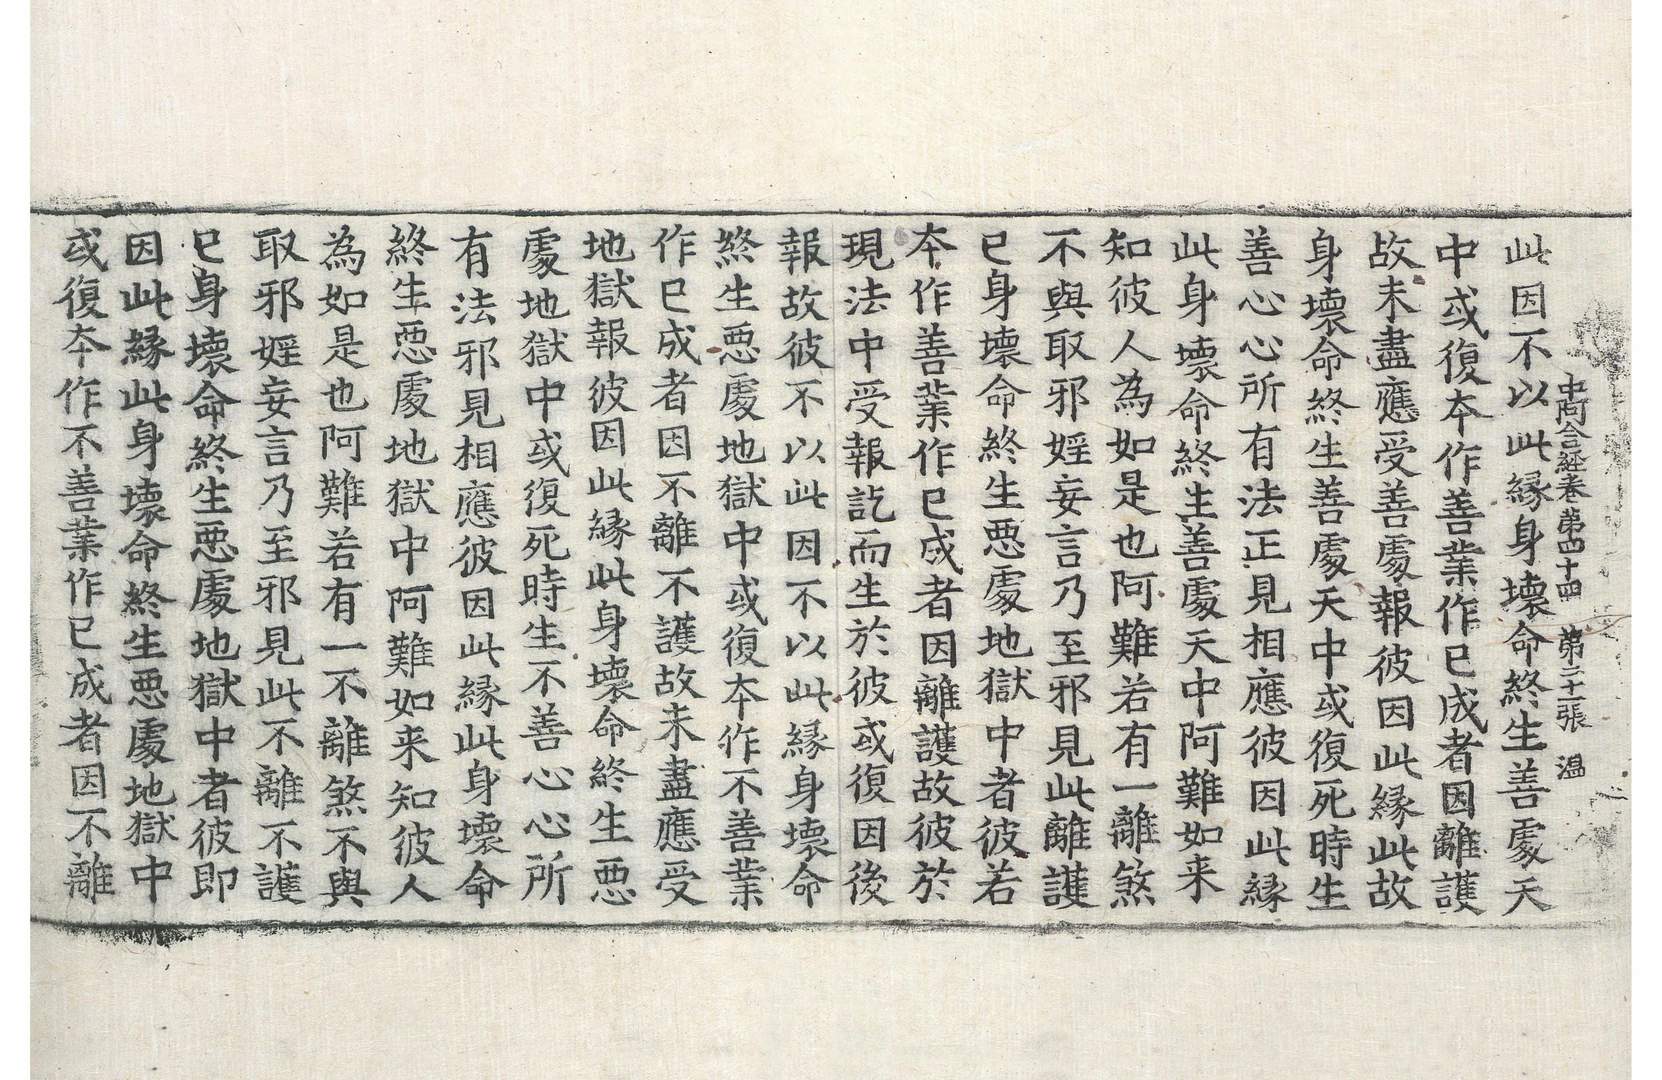 中阿含經卷第四十四　第二十張　溫
此因不以此緣身壞命終生善處天
中或復本作善業作已成者因離護
故未盡應受善處報彼因此緣此故
身壞命終生善處天中或復死時生
善心心所有法正見相應彼因此緣
此身壞命終生善處天中阿難如来
知彼人為如是也阿難若有一離煞
不與取邪婬妄言乃至邪見此離護
已身壞命終生惡處地獄中者彼若
本作善業作已成者因離護故彼於
現法中受報訖而生於彼或復因後
報故彼不以此因不以此緣身壞命
終生惡處地獄中或復本作不善業
作已成者因不離不護故未盡應受
地獄報彼因此緣此身壞命終生惡
處地獄中或復死時生不善心心所
有法邪見相應彼因此緣此身壞命
終生惡處地獄中阿難如来知彼人
為如是也阿難若有一不離煞不與
取邪婬妄言乃至邪見此不離不護
已身壞命終生惡處地獄中者彼即
因此緣此身壞命終生惡處地獄中
或復本作不善業作已成者因不離